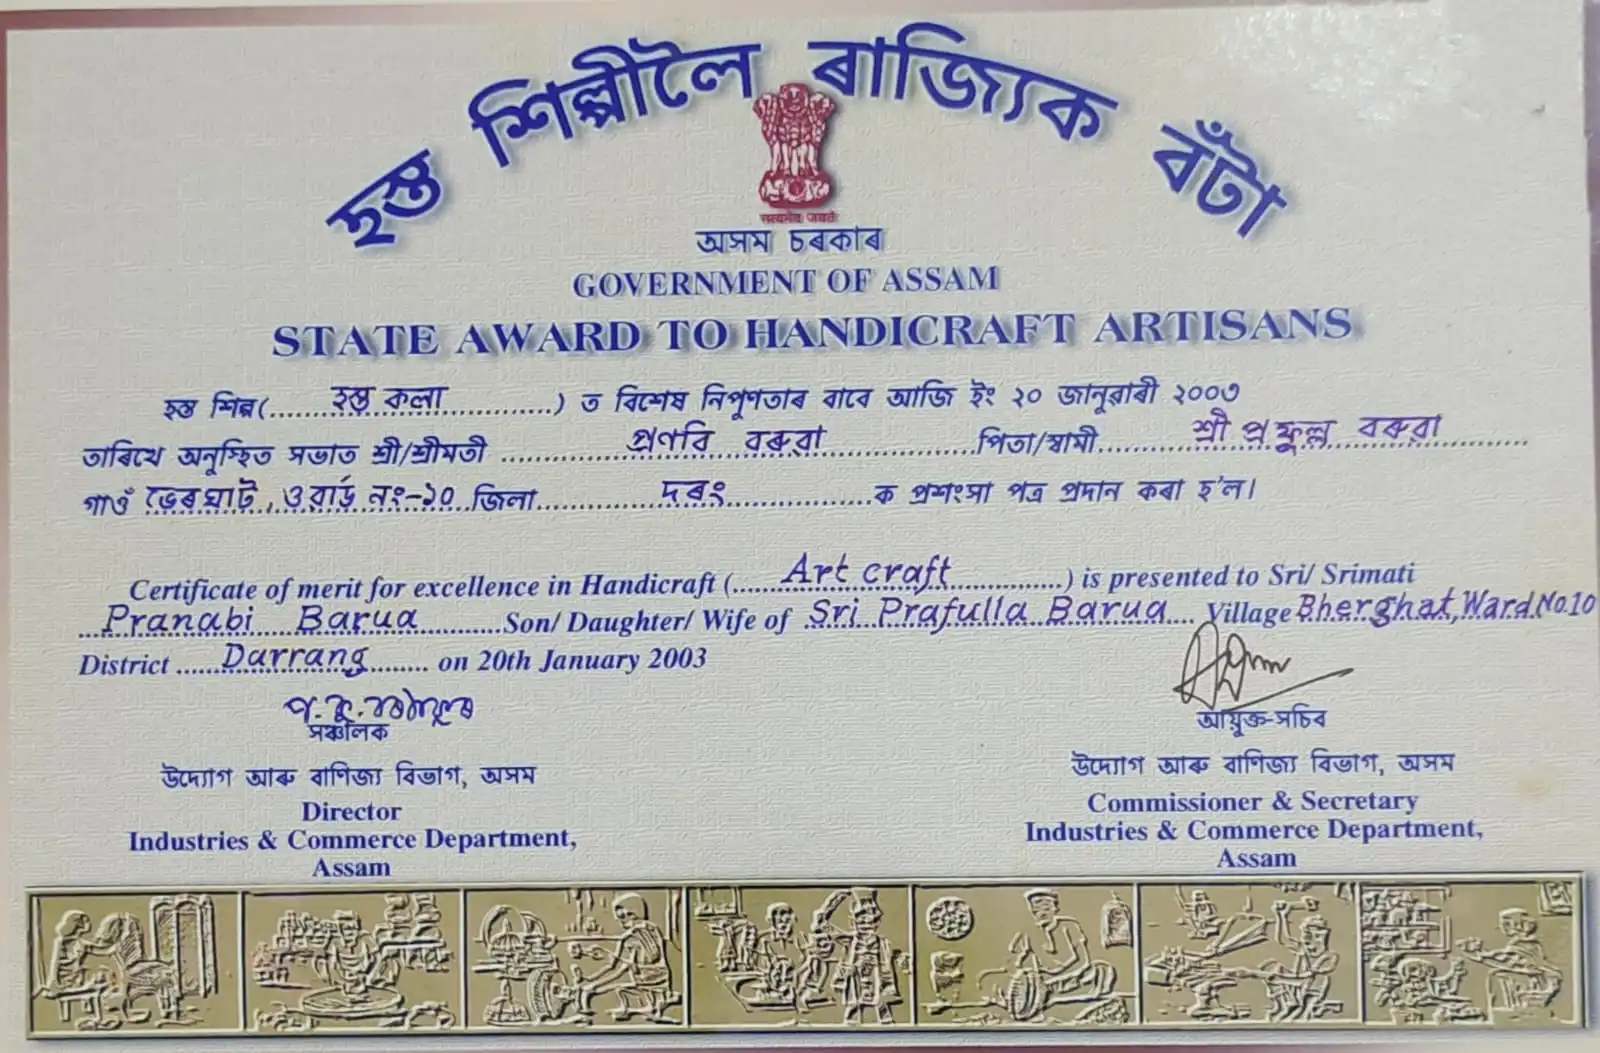 হস্ত শিল্পীলৈ ৰাজ্যিক বঁটা
सत्यमेव जयते
অসম চৰকাৰ
GOVERNMENT OF ASSAM
STATE AWARD TO HANDICRAFT ARTISANS
হস্ত শিল্প(......হস্ত কলা............) ত বিশেষ নিপুণতাৰ বাবে আজি ইং ২০ জানুৱাৰী ২০০৩
তাৰিখে অনুস্থিত সভাত শ্ৰী/শ্ৰীমতী ............প্ৰণবি বৰুৱা..............পিতা/স্বামী..........শ্ৰী প্ৰফুল্ল বৰুৱা..........
গাওঁ ভেৰঘাট, ওৱাৰ্ড নং-১০ জিলা............দৰং..............ক প্ৰশংসা পত্ৰ প্ৰদান কৰা হ'ল।
Certificate of merit for excellence in Handicraft (.....Art craft............) is presented to Sri/ Srimati
...Pranabi Barua........Son/ Daughter/ Wife of .Sri Prafulla Barua.... Village Bherghat, Ward No.10
District .....Darrang....... on 20th January 2003
সঞ্চালক
উদ্যোগ আৰু বাণিজ্য বিভাগ, অসম
Director
Industries & Commerce Department,
Assam
আয়ুক্ত-সচিব
উদ্যোগ আৰু বাণিজ্য বিভাগ, অসম
Commissioner & Secretary
Industries & Commerce Department,
Assam